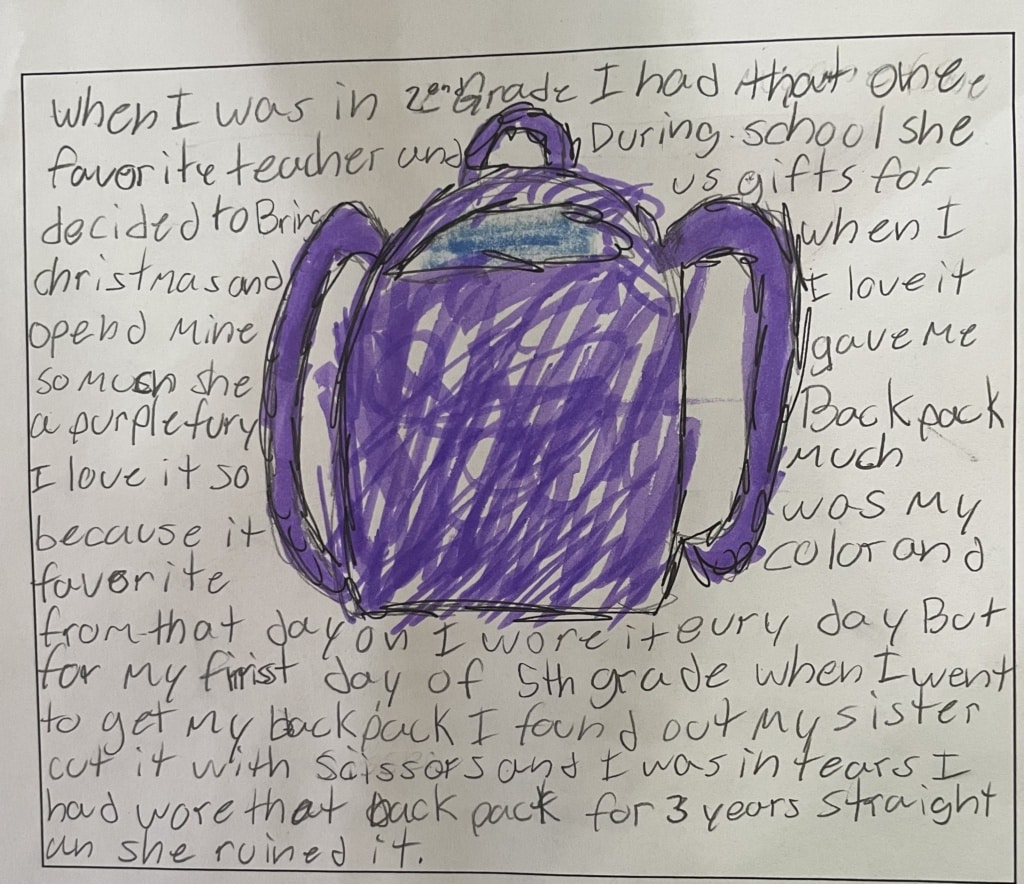 when I was in 2end Grade I had that one
favorite teacher and During school she
decided to Bring us gifts for
christmas and when I
opend Mine I love it
so much she gave Me
a purple fury Backpack
I love it so Much
because it was My
favorite color and
from that day on I wore it eury day But
for My first day of 5th grade when I went
to get My backpack I found out My sister
cut it with scissors and I was in tears I
had wore that back pack for 3 years straight
an she ruined it.